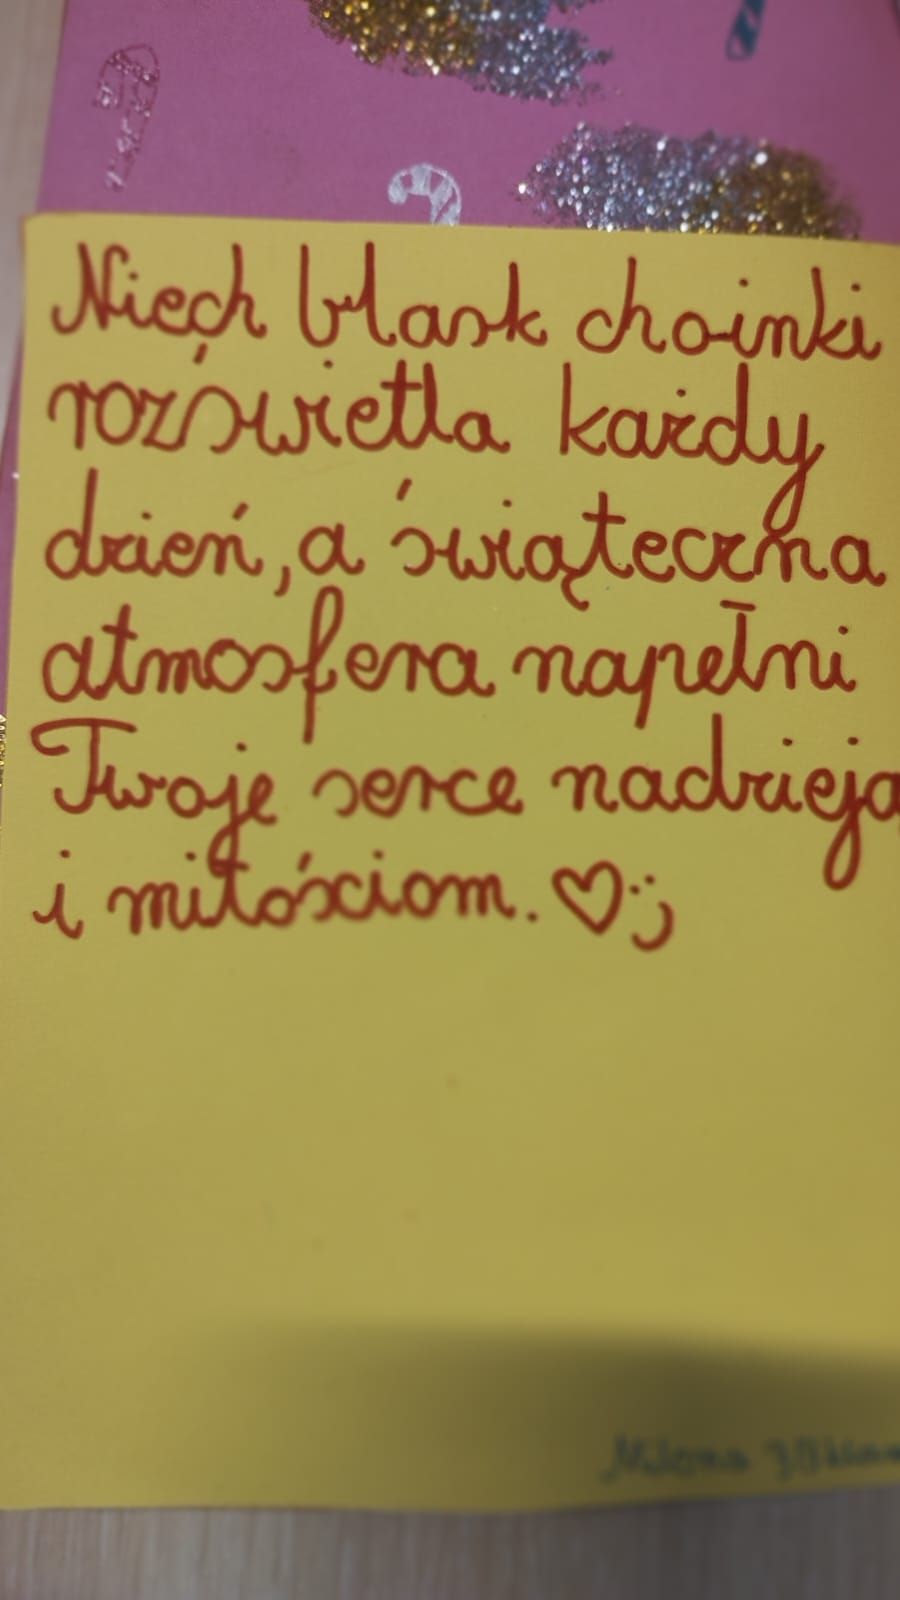 Niech blask choinki
rozświetla każdy
dzień, a świąteczna
atmosfera napełni
Twoje serce nadzieją
i miłościom. ♡ :)
Milena